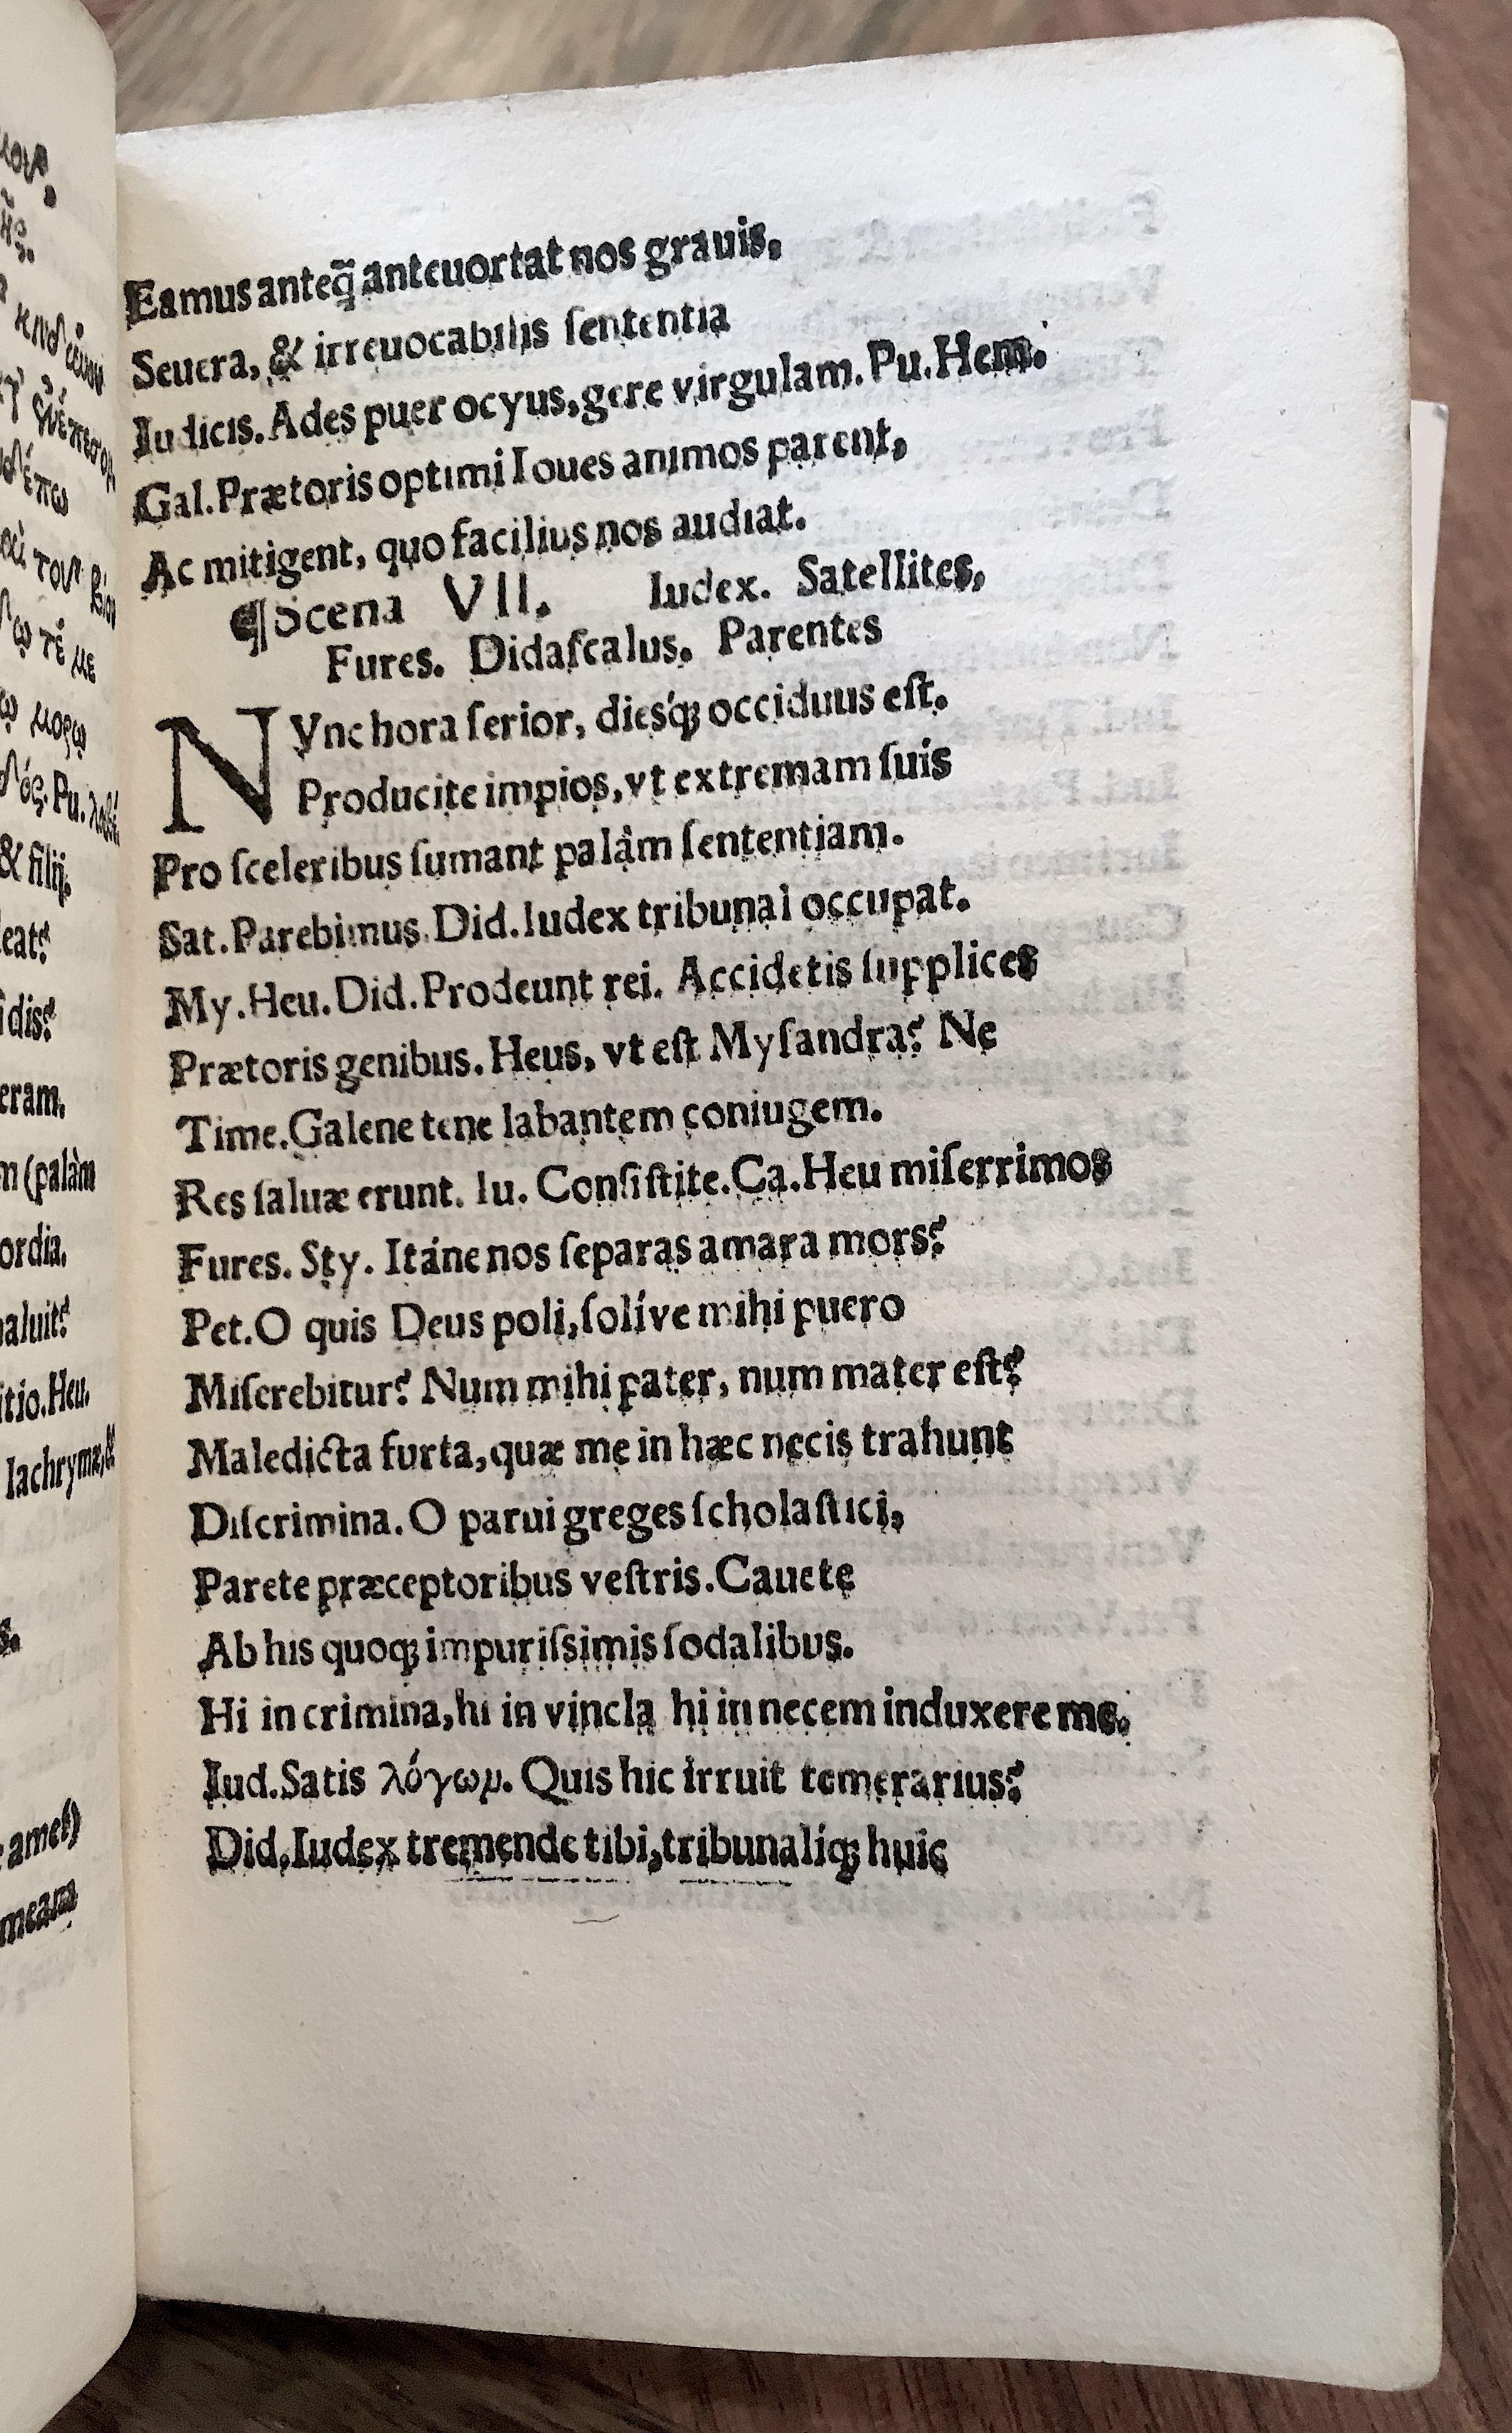 Eamus anteq̃ anteuortat nos grauis,
Seuera, & irreuocabilis ſententia
Iudicis. Ades puer ocyus, gere virgulam. Pu. Hem.
Gal. Prætoris optimi Ioues animos parent,
Ac mitigent, quo facilius nos audiat.
¶ Scena VII. Iudex. Satellites,
Fures. Didaſcalus. Parentes
NVnc hora ſerior, dieſq́ꝫ occiduus eſt.
Producite impios, vt extremam ſuis
Pro ſceleribus ſumant palàm ſententiam.
Sat. Parebimus. Did. Iudex tribunal occupat.
My. Heu. Did. Prodeunt rei. Accidetis ſupplices
Prætoris genibus. Heus, vt eſt Myſandra? Ne
Time. Galene tene labantem coniugem.
Res ſaluæ erunt. Iu. Conſiſtite. Ca. Heu miſerrimos
Fures. Sty. Itáne nos ſeparas amara mors?
Pet. O quis Deus poli, ſolíve mihi puero
Miſerebitur? Num mihi pater, num mater eſt?
Maledicta furta, quæ me in hæc necis trahunt
Diſcrimina. O parui greges ſcholaſtici,
Parete præceptoribus veſtris. Cauete
Ab his quoqꝫ impuriſsimis ſodalibus.
Hi in crimina, hi in vincla hi in necem induxere me.
Iud. Satis λόγων. Quis hic irruit temerarius?
Did. Iudex tremende tibi, tribunalíqꝫ huic
& filij.
eram.
ordia.
itio. Heu.
lachrymæ, &
amet)